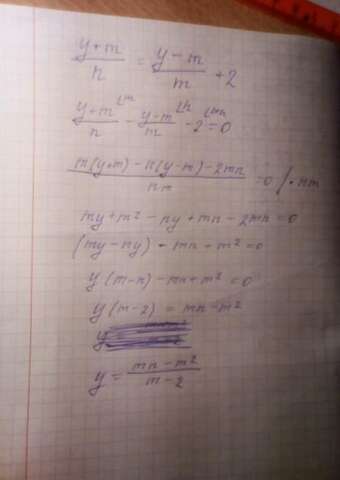 (y+m)/n = (y-m)/m + 2
(y+m)/n ^(∟m) - (y-m)/m ^(∟n) - 2 ^(∟mn) = 0
(m(y+m) - n(y-m) - 2mn)/nm = 0 / · nm
my + m² - ny + mn - 2mn = 0
(my - ny) - mn + m² = 0
y(m-n) - mn + m² = 0
y(m-2) = mn - m²
y = (mn - m²)/(m-2)